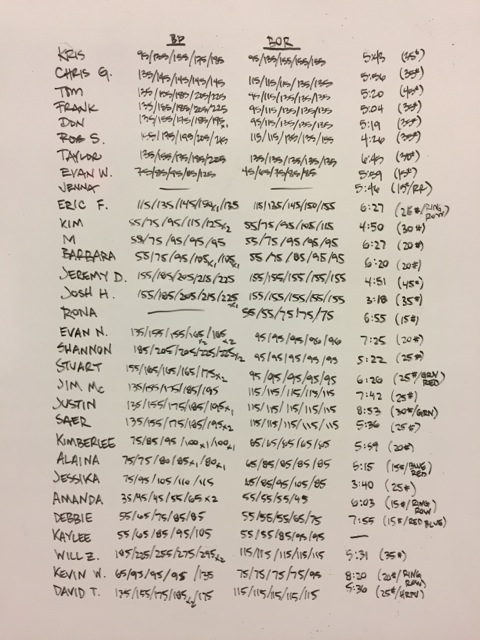 BP BOR
KRIS 95/135/155/175/195 95/135/155/155/155 5:43 (35#)
CHRIS G. 135/145/145/145/145 115/115/115/135/135 5:56 (35#)
TOM 135/155/185/205/225 95/115/135/135/135 5:20 (45#)
FRANK 135/155/185/205/225 95/115/135/135/135 5:04 (35#)
DON 135/155/175/185/195x1 95/115/135/135/135 5:19 (35#)
ROB S. 115/115/135/135/155 4:26 (35#)
TAYLOR 135/155/155/185/225 135/135/135/135/135 6:45 (35#)
EVAN W. 75/85/95/85/125 45/65/75/85/85 5:59 (15#)
JENNA — — 5:46 (15#/RR)
ERIC F. 115/135/145/150x1/135 115/135/145/150/155 6:27 (25#/RING ROW)
KIM 55/75/95/115/125x2 55/75/95/105/115 4:50 (30#)
M 55/75/95/95/95 55/75/95/95/95 6:27 (20#)
BARBARA 55/75/95/105x1/105x1 55/75/85/95/95 6:20 (20#)
JEREMY D. 155/185/205/215/225 155/155/155/155/155 4:51 (45#)
JOSH H. 155/185/205/215/225x1 155/155/155/155/155 3:18 (35#)
RONA — 55/55/75/75/75 6:55 (15#)
EVAN N. 135/155/155/165x2/165x2 95/95/95/95/95 7:25 (20#)
SHANNON 185/205/205/225/225x2 95/95/95/95/95 5:22 (25#)
STUART 155/165/165/165/175x2 95/95/95/95/95 6:26 (25#/GRN RED)
JIM MC 135/155/175/185/195 115/115/115/115/115 7:42 (25#)
JUSTIN 135/155/175/185/195x1 115/115/115/115/115 8:53 (30#/GRN)
SAER 135/155/175/185/195x2 115/115/115/115/115 5:36 (25#)
KIMBERLEE 75/85/95/100x1/100x1 65/65/65/65/65 5:59 (20#)
ALAINA 75/75/80/85x1/80x1 65/85/85/85/85 5:15 (15#/BLUE RED)
JESSIKA 75/95/105/110/115 65/85/95/105/85 3:40 (25#)
AMANDA 35/45/45/55/65x2 55/55/55/45 6:03 (15#/RING ROW)
DEBBIE 55/65/75/85/85 55/55/55/65/75 7:55 (15#/RED BLUE)
KAYLEE 55/65/85/95/105 55/55/85/95/95 —
WILL Z. 185/225/255/275/295x2 115/115/115/115/115 5:31 (35#)
KEVIN W. 65/95/95/95/135 75/75/75/75/95 8:20 (20#/RING ROW)
DAVID T. 135/155/175/185x2/175 115/115/115/115/115 5:36 (25#/GRN)